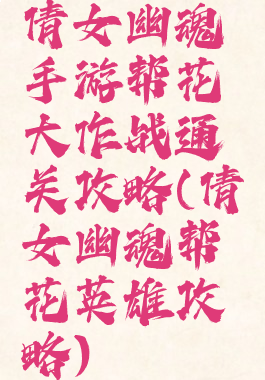 倩女幽魂
手游帮花
大作战通
关攻略(倩
女幽魂帮
花英雄攻
略)